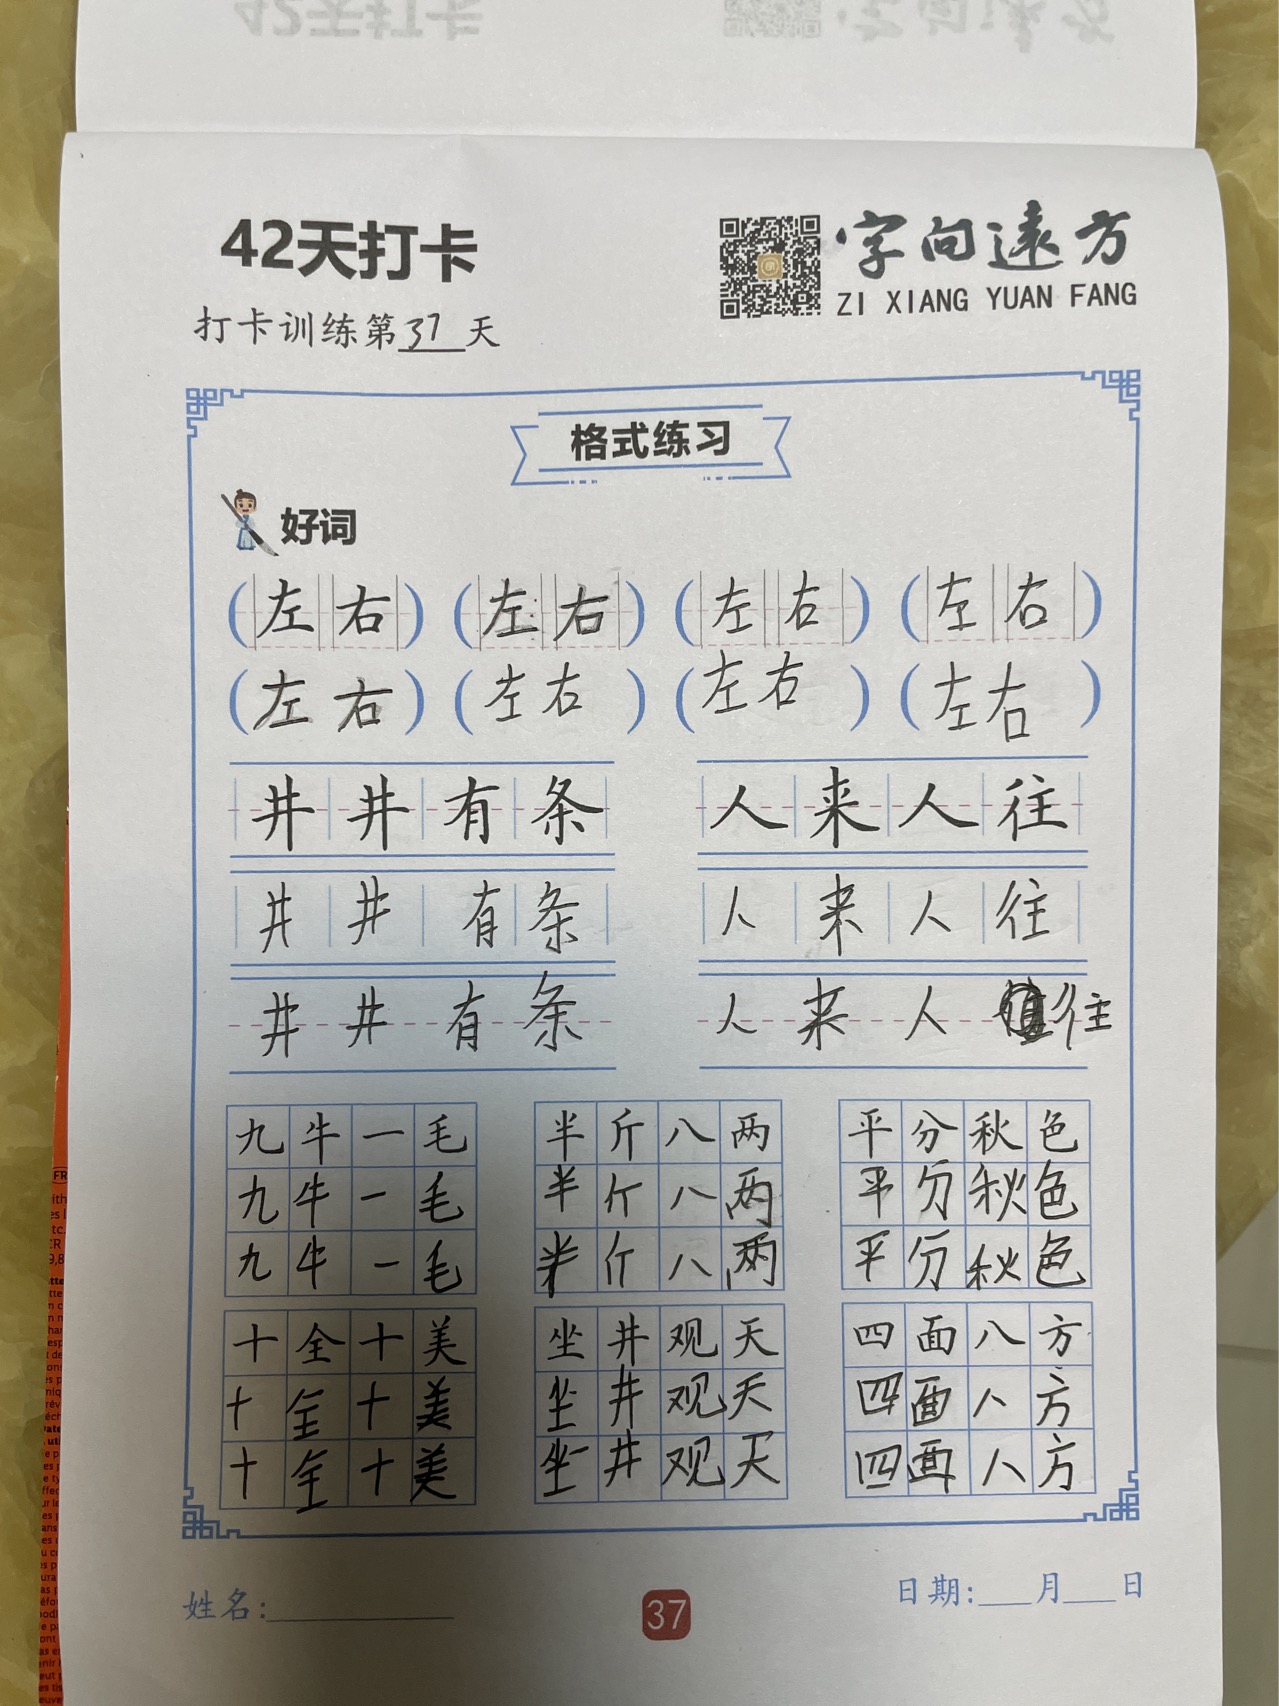 42天打卡
字向遠方
ZI XIANG YUAN FANG
打卡训练第37天
格式练习
好词
(左右) (左右) (左右) (左右)
(左右) (左右) (左右) (左右)
井井有条 人来人往
井井有条 人来人往
井井有条 人来人往
九牛一毛 半斤八两 平分秋色
九牛一毛 半斤八两 平分秋色
九牛一毛 半斤八两 平分秋色
十全十美 坐井观天 四面八方
十全十美 坐井观天 四面八方
十全十美 坐井观天 四面八方
姓名:
37
日期: 月 日